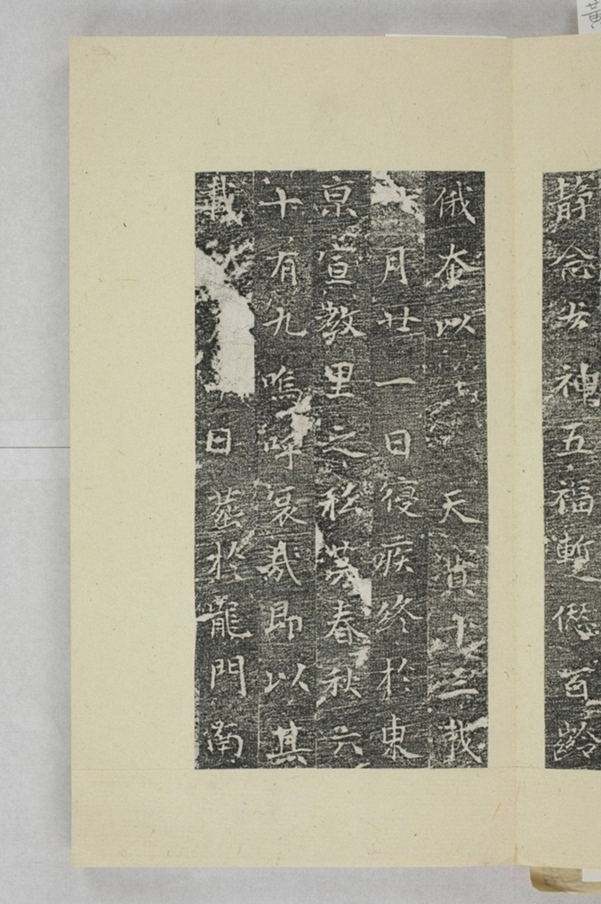 靜念安神五福漸僁百齡
俄奄以天寶十三載
月廿一日寑疾終於東
京宣教里之私第春秋六
十有九嗚呼哀哉即以其
載日葬於龍門南